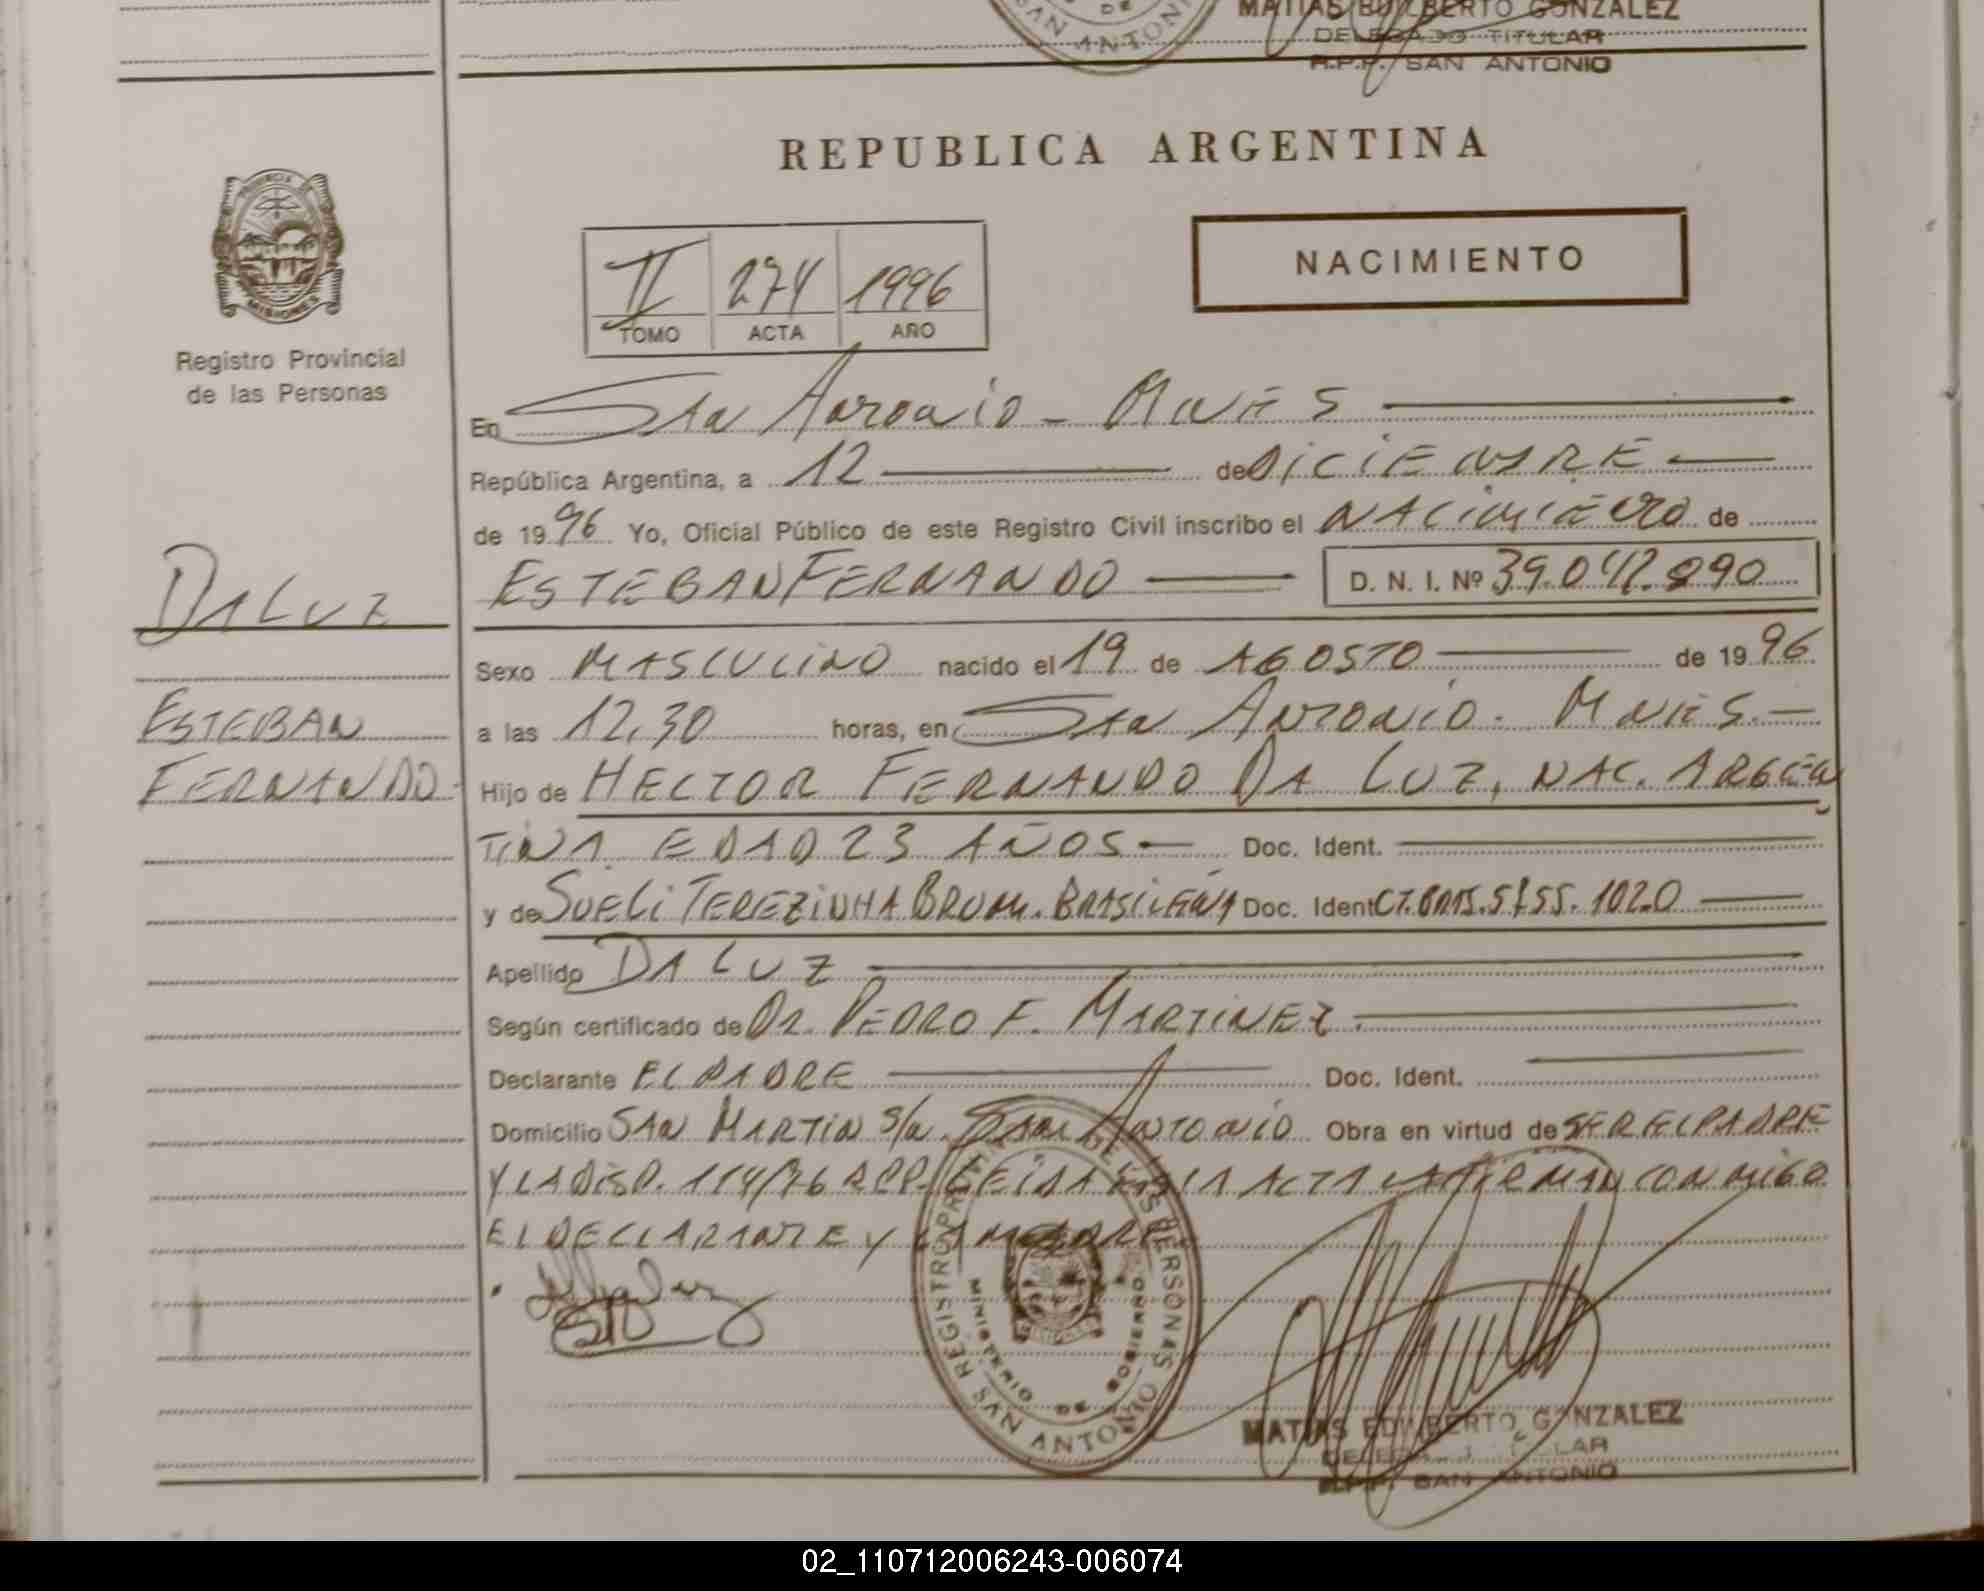 MATIAS EDILBERTO GONZALEZ
DELEGADO TITULAR
R.P.P. SAN ANTONIO
DE
SAN ANTONIO
REPUBLICA ARGENTINA
PROVINCIA DE
MISIONES
Registro Provincial
de las Personas
II 274 1996
TOMO ACTA AÑO
NACIMIENTO
En San Antonio - Mnes
República Argentina, a 12 de DICIEMBRE
de 1996 Yo, Oficial Público de este Registro Civil inscribo el NACIMIENTO de
ESTEBAN FERNANDO D. N. I. Nº
DA LUZ
ESTEBAN
FERNANDO
Sexo MASCULINO nacido el 19 de AGOSTO de 1996
a las 12,30 horas, en SAN ANTONIO. Mnes.
Hijo de HECTOR FERNANDO DA LUZ, NAC. ARGEN
TINA. EDAD 23 AÑOS Doc. Ident.
y de SUELI TEREZINHA BRUM. BRASILEÑA Doc. Ident
Apellido DA LUZ
Según certificado de DR. PEDRO F. MARTINEZ.
Declarante EL PADRE Doc. Ident.
Domicilio SAN MARTIN S/N. SAN ANTONIO Obra en virtud de SER EL PADRE
Y LA DISP. 114/76 RPP. LEIDA ESTA ACTA LA FIRMAN CONMIGO
EL DECLARANTE Y LA MADRE
REGISTRO PROVINCIAL DE LAS PERSONAS
MINISTERIO DE GOBIERNO
SAN ANTONIO
MATIAS EDILBERTO GONZALEZ
DELEGADO TITULAR
R.P.P. SAN ANTONIO
02_110712006243-006074